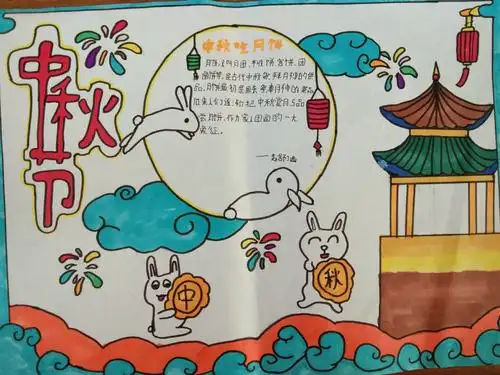 中秋节
中秋吃月饼
月饼,又叫月团、丰收饼、宫饼、团
圆饼等,是古代中秋祭拜月神的供
品,月饼最初是用来祭奉月神的祭品
后来人们逐渐把中秋赏月与品
尝月饼,作为家人团圆的一大
象征。
中
秋